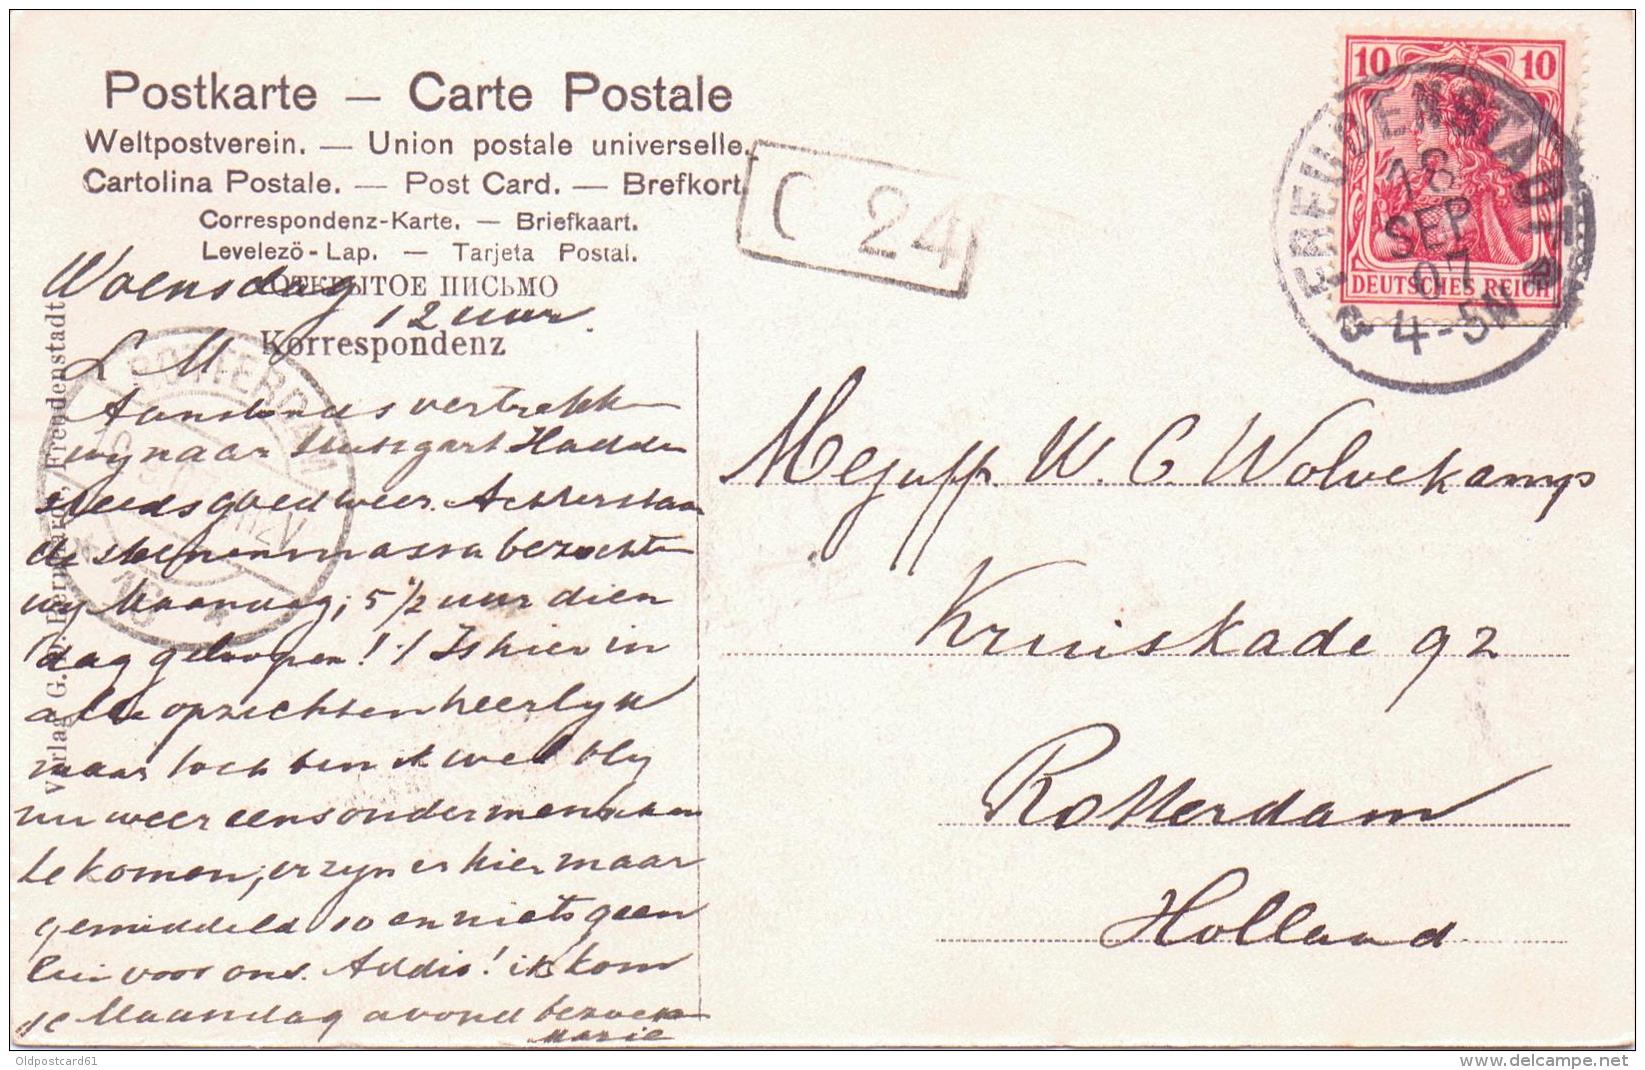 Postkarte — Carte Postale
Weltpostverein. — Union postale universelle.
Cartolina Postale. — Post Card. — Brefkort.
Correspondenz-Karte. — Briefkaart.
Levelező-Lap. — Tarjeta Postal.
ОТКРЫТОЕ ПИСЬМО
Korrespondenz
C 24
10 10
DEUTSCHES REICH
FREUDENSTADT
18
SEP
07
4-5N
ROTTERDAM
Verlag G. Freudenstadt
Woensdag
12 uur.
L M
Aanstonds vertrekken
wy naar Stuttgart Hadden
steeds goed weer.
de steenenmassa bezochten
wy Maandag; 5 1/2 uur dien
dag geloopen! 't Is hier in
alle opzichten heerlyk
maar toch ben ik wel bly
nu weer eens onder menschen
te komen, er zyn er hier maar
gemiddeld 10 en niets geen
voor ons. Addio! ik kom
je Maandag avond bezoeken
Marie
Mejuffr. W. C. Wolvekamp
Kruiskade 92
Rotterdam
Holland
Oldpostcard61
delcampe.net